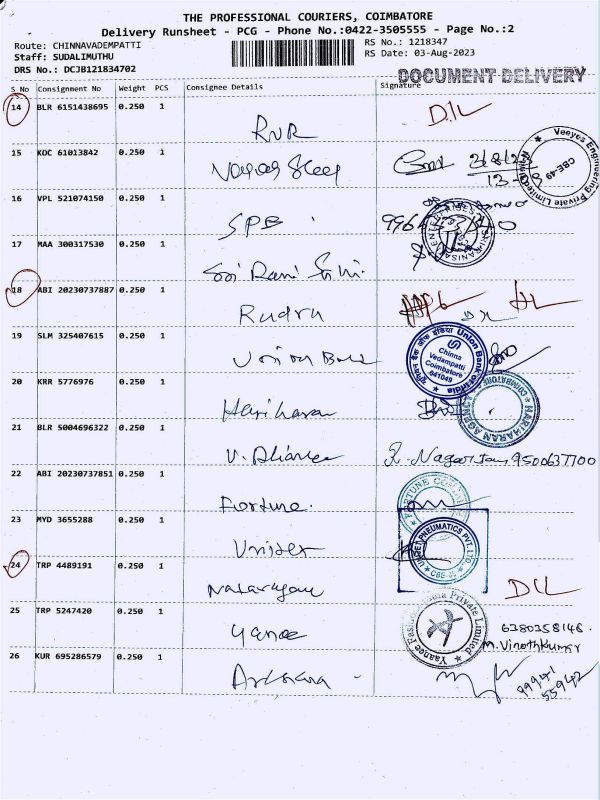 THE PROFESSIONAL COURIERS, COIMBATORE
Delivery Runsheet - PCG - Phone No.:0422-3505555 - Page No.:2
Route: CHINNAVADEMPATTI
RS No.: 1218347
Staff: SUDALIMUTHU
RS Date: 03-Aug-2023
DRS No.: DCJB121834702
DOCUMENT DELIVERY
S No Consignment No Weight PCS Consignee Details Signature
14 BLR 6151438695 0.250 1
RNR
D.L
15 KDC 61013842 0.250 1
Veeyes Engineering Private Limited
CBE-49
16 VPL 521074150 0.250 1
SPB
17 MAA 300317530 0.250 1
Sri Rani
18 ABI 20230737887 0.250 1
Rudru
DL
19 SLM 325407615 0.250 1
Union Bank
Union Bank of India
यूनियन बैंक ऑफ इंडिया
Chinna
Vedampatti
Coimbatore
641049
20 KRR 5776976 0.250 1
Hariharan
HARIHARAN AGENCY
COIMBATORE
21 BLR 5004696322 0.250 1
V. Aliance
9500637700
22 ABI 20230737851 0.250 1
Fortune.
FORTUNE
23 MYD 3655288 0.250 1
Uniser
PNEUMATICS PVT. LTD.
24 TRP 4489191 0.250 1
Natarajan
DLL
25 TRP 5247420 0.250 1
Yanee
Yaanee Fashion India Private Limited
6380358146.
M. Vinothkumar
26 KUR 695286579 0.250 1
Archana
99941
55942